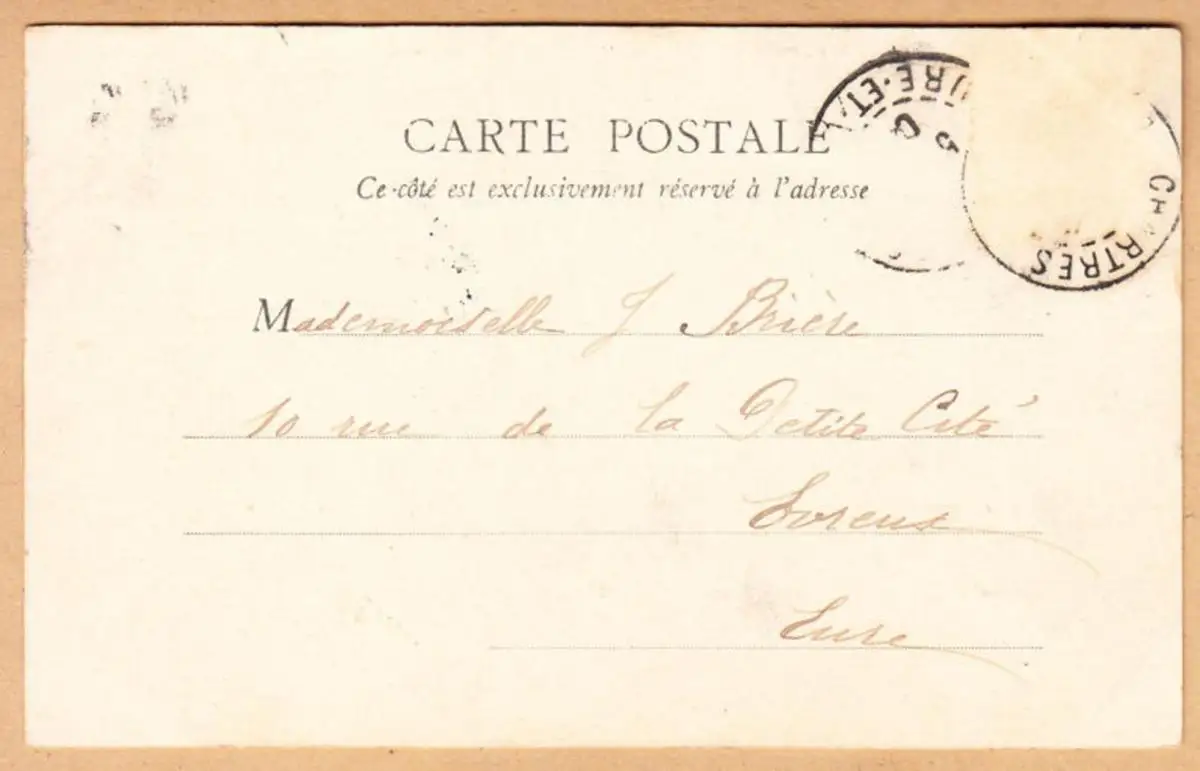 CARTE POSTALE
Ce côté est exclusivement réservé à l'adresse
Mademoiselle J Brière
10 rue de la Petite Cité
Evreux
Eure
CHARTRES
EURE-ET-